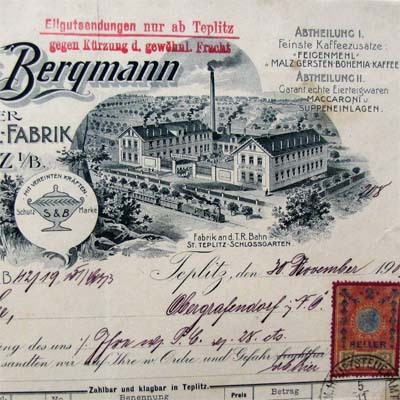 Eilgutsendungen nur ab Teplitz
gegen Kürzung d. gewöhnl. Fracht
Bergmann
ER
-FABRIK
Z i/B.
ABTHEILUNG I.
Feinste Kaffeezusätze:
FEIGENMEHL
MALZ GERSTEN-BOHEMIA-KAFFEE
ABTHEILUNG II.
Garant. echte Eierteigwaren
MACCARONI u
SUPPENEINLAGEN.
MIT VEREINTEN KRÄFTEN
Schutz S&B Marke
Fabrik an d. T.R. Bahn
ST. TEPLITZ-SCHLOSSGARTEN.
Teplitz, den 30 November 190
Obergrafendorf N.Ö.
HELLER
ng des uns
sandten wir auf Ihre w Ordre und Gefahr
Zahlbar und klagbar in Teplitz.
Benennung Preis Betrag